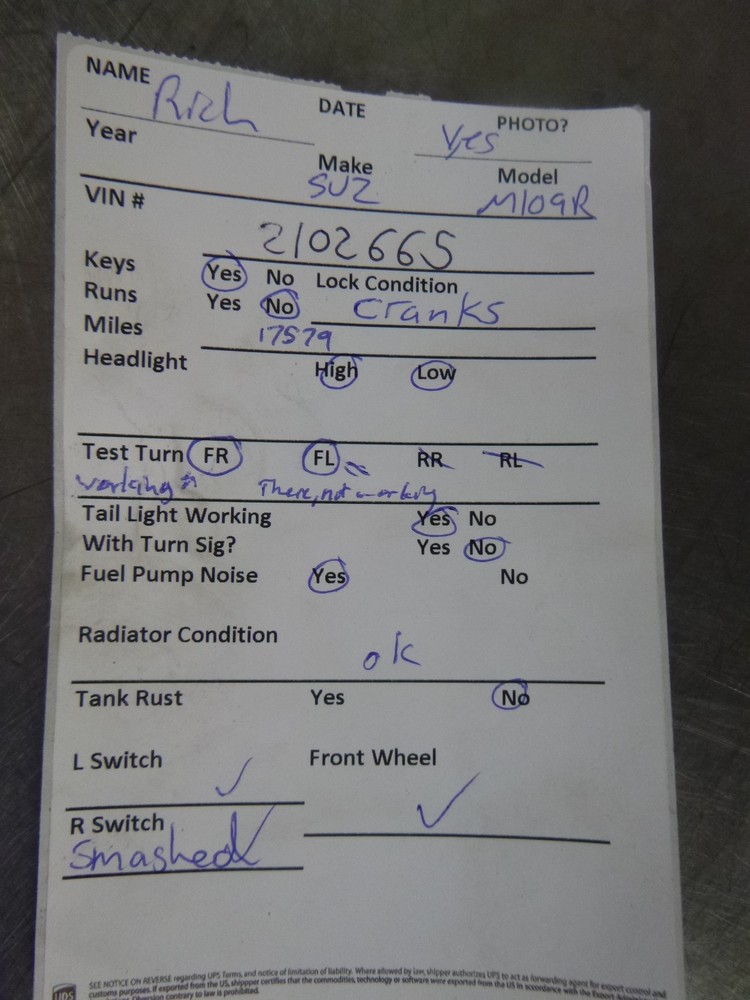 NAME Rich DATE PHOTO? Yes
Year Make SUZ Model M109R
VIN # 2102665
Keys Yes No Lock Condition
Runs Yes No Cranks
Miles 17579
Headlight High Low
Test Turn FR FL RR RL
working There, not working
Tail Light Working Yes No
With Turn Sig? Yes No
Fuel Pump Noise Yes No
Radiator Condition ok
Tank Rust Yes No
L Switch ✓ Front Wheel ✓
R Switch
Smashed ✓
UPS SEE NOTICE ON REVERSE regarding UPS Terms, and notice of limitation of liability. Where allowed by law, shipper authorizes UPS to act as forwarding agent for export control and
customs purposes. If exported from the US, shipper certifies that the commodities, technology or software were exported from the US in accordance with the Export
Diversion contrary to law is prohibited.